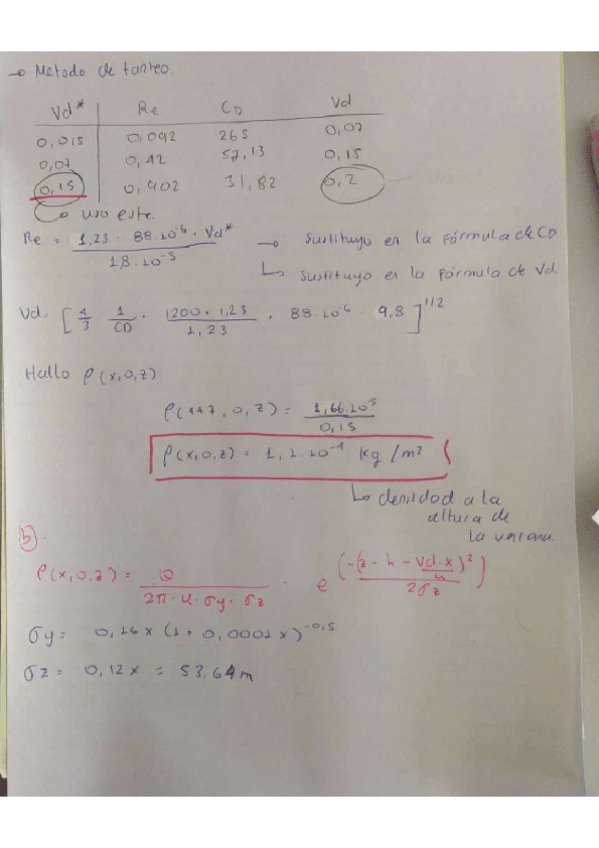 → Metodo de tanteo.
Vd* Re CD Vd
0,015 0,092 265 0,07
0,07 0,42 57,13 0,15
0,15 0,902 31,82 0,2
uso este.
Re = 1,23 · 88·10⁻⁶ · Vd* / 1,8·10⁻⁵ → Sustituyo en la fórmula de CD
↳ Sustituyo en la fórmula de Vd.
Vd = [4/3 · 1/CD · 1200 · 1,23 / 1,23 · 88·10⁻⁶ · 9,8]^1/2
Hallo ρ(x,0,z)
ρ(447, 0, z) = 1,66·10⁻⁵ / 0,15
ρ(x,0,z) = 1,1·10⁻⁴ kg/m³
↳ densidad a la
altura de
la
b).
ρ(x,0,z) = Q / 2π·u·σy·σz · e^(-(z - h - Vd·x/u)² / 2σz²)
σy = 0,16x (1 + 0,0001x)^-0,5
σz = 0,12x = 53,64m